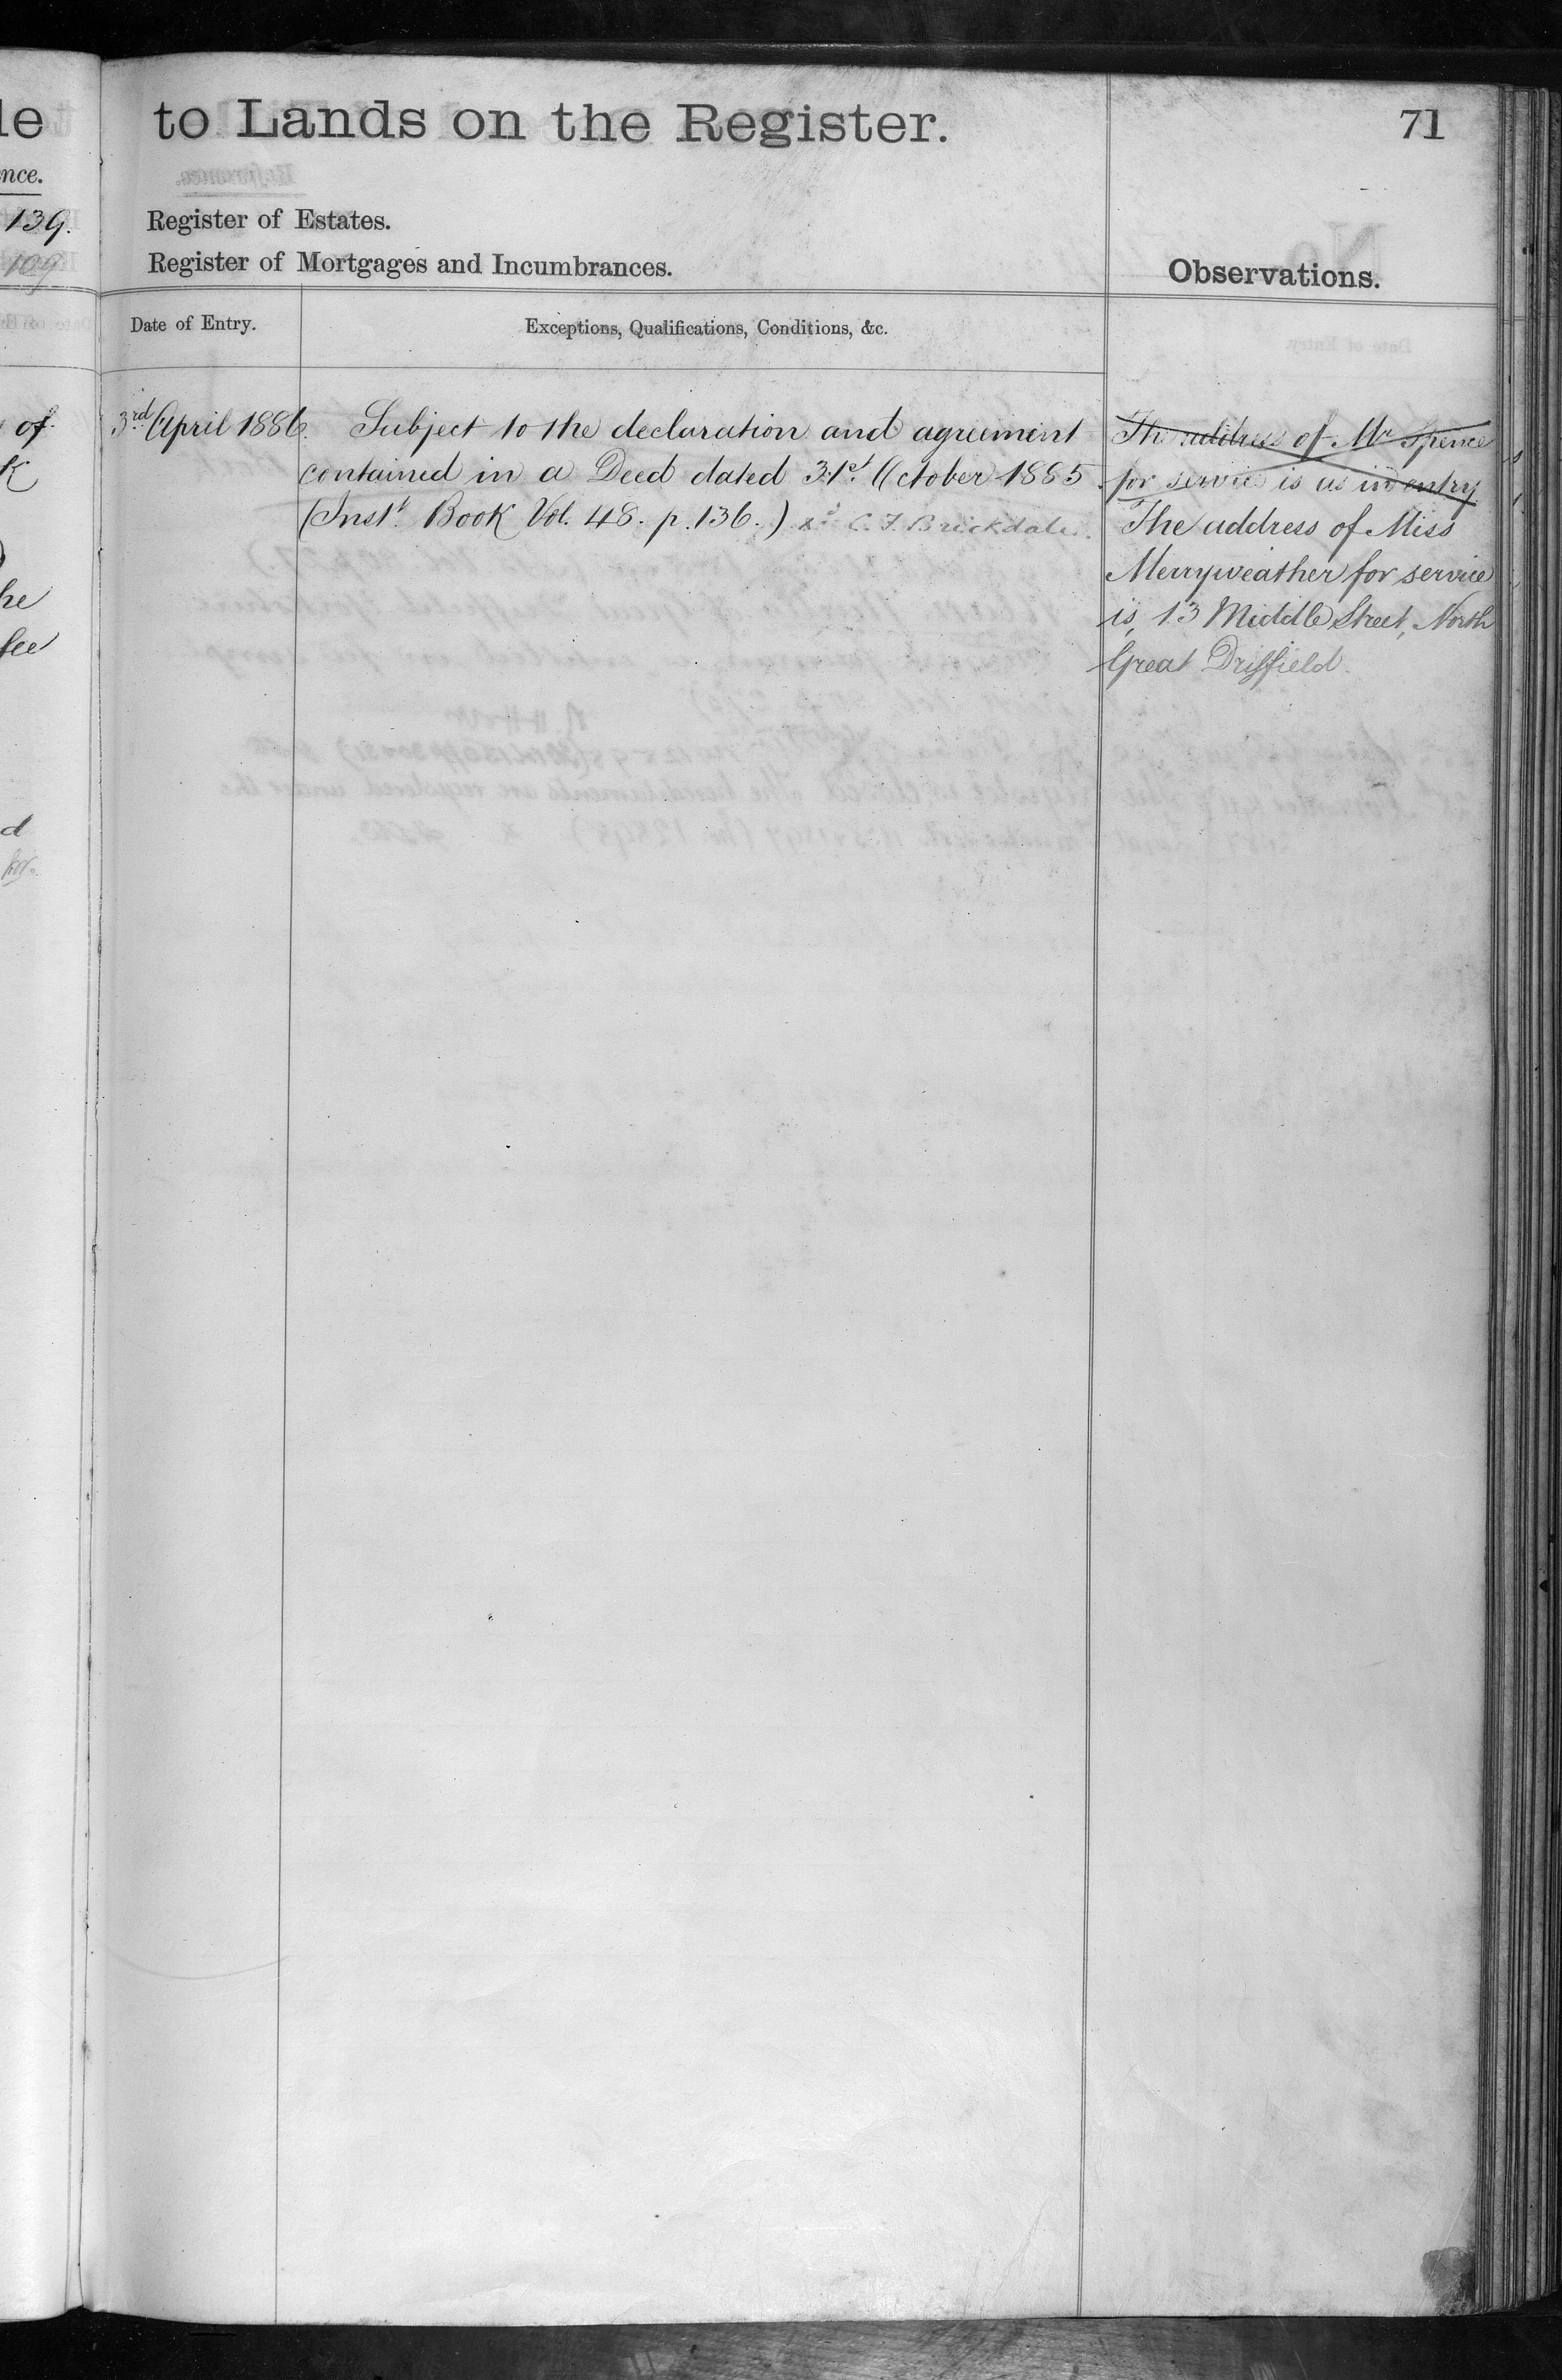 le
nce.
139.
109
of
K
he
fee
d
to Lands on the Register.
71
Register of Estates.
Register of Mortgages and Incumbrances.
Observations.
Date of Entry.
Exceptions, Qualifications, Conditions, &c.
3rd April 1886.
Subject to the declaration and agreement
contained in a Deed dated 31st October 1885
(Inst. Book Vol. 48. p. 136.) xd C. F. Brickdale.
The address of Mr Spence
for service is as in entry
The address of Miss
Merryweather for service
is, 13 Middle Street, North
Great Driffield.